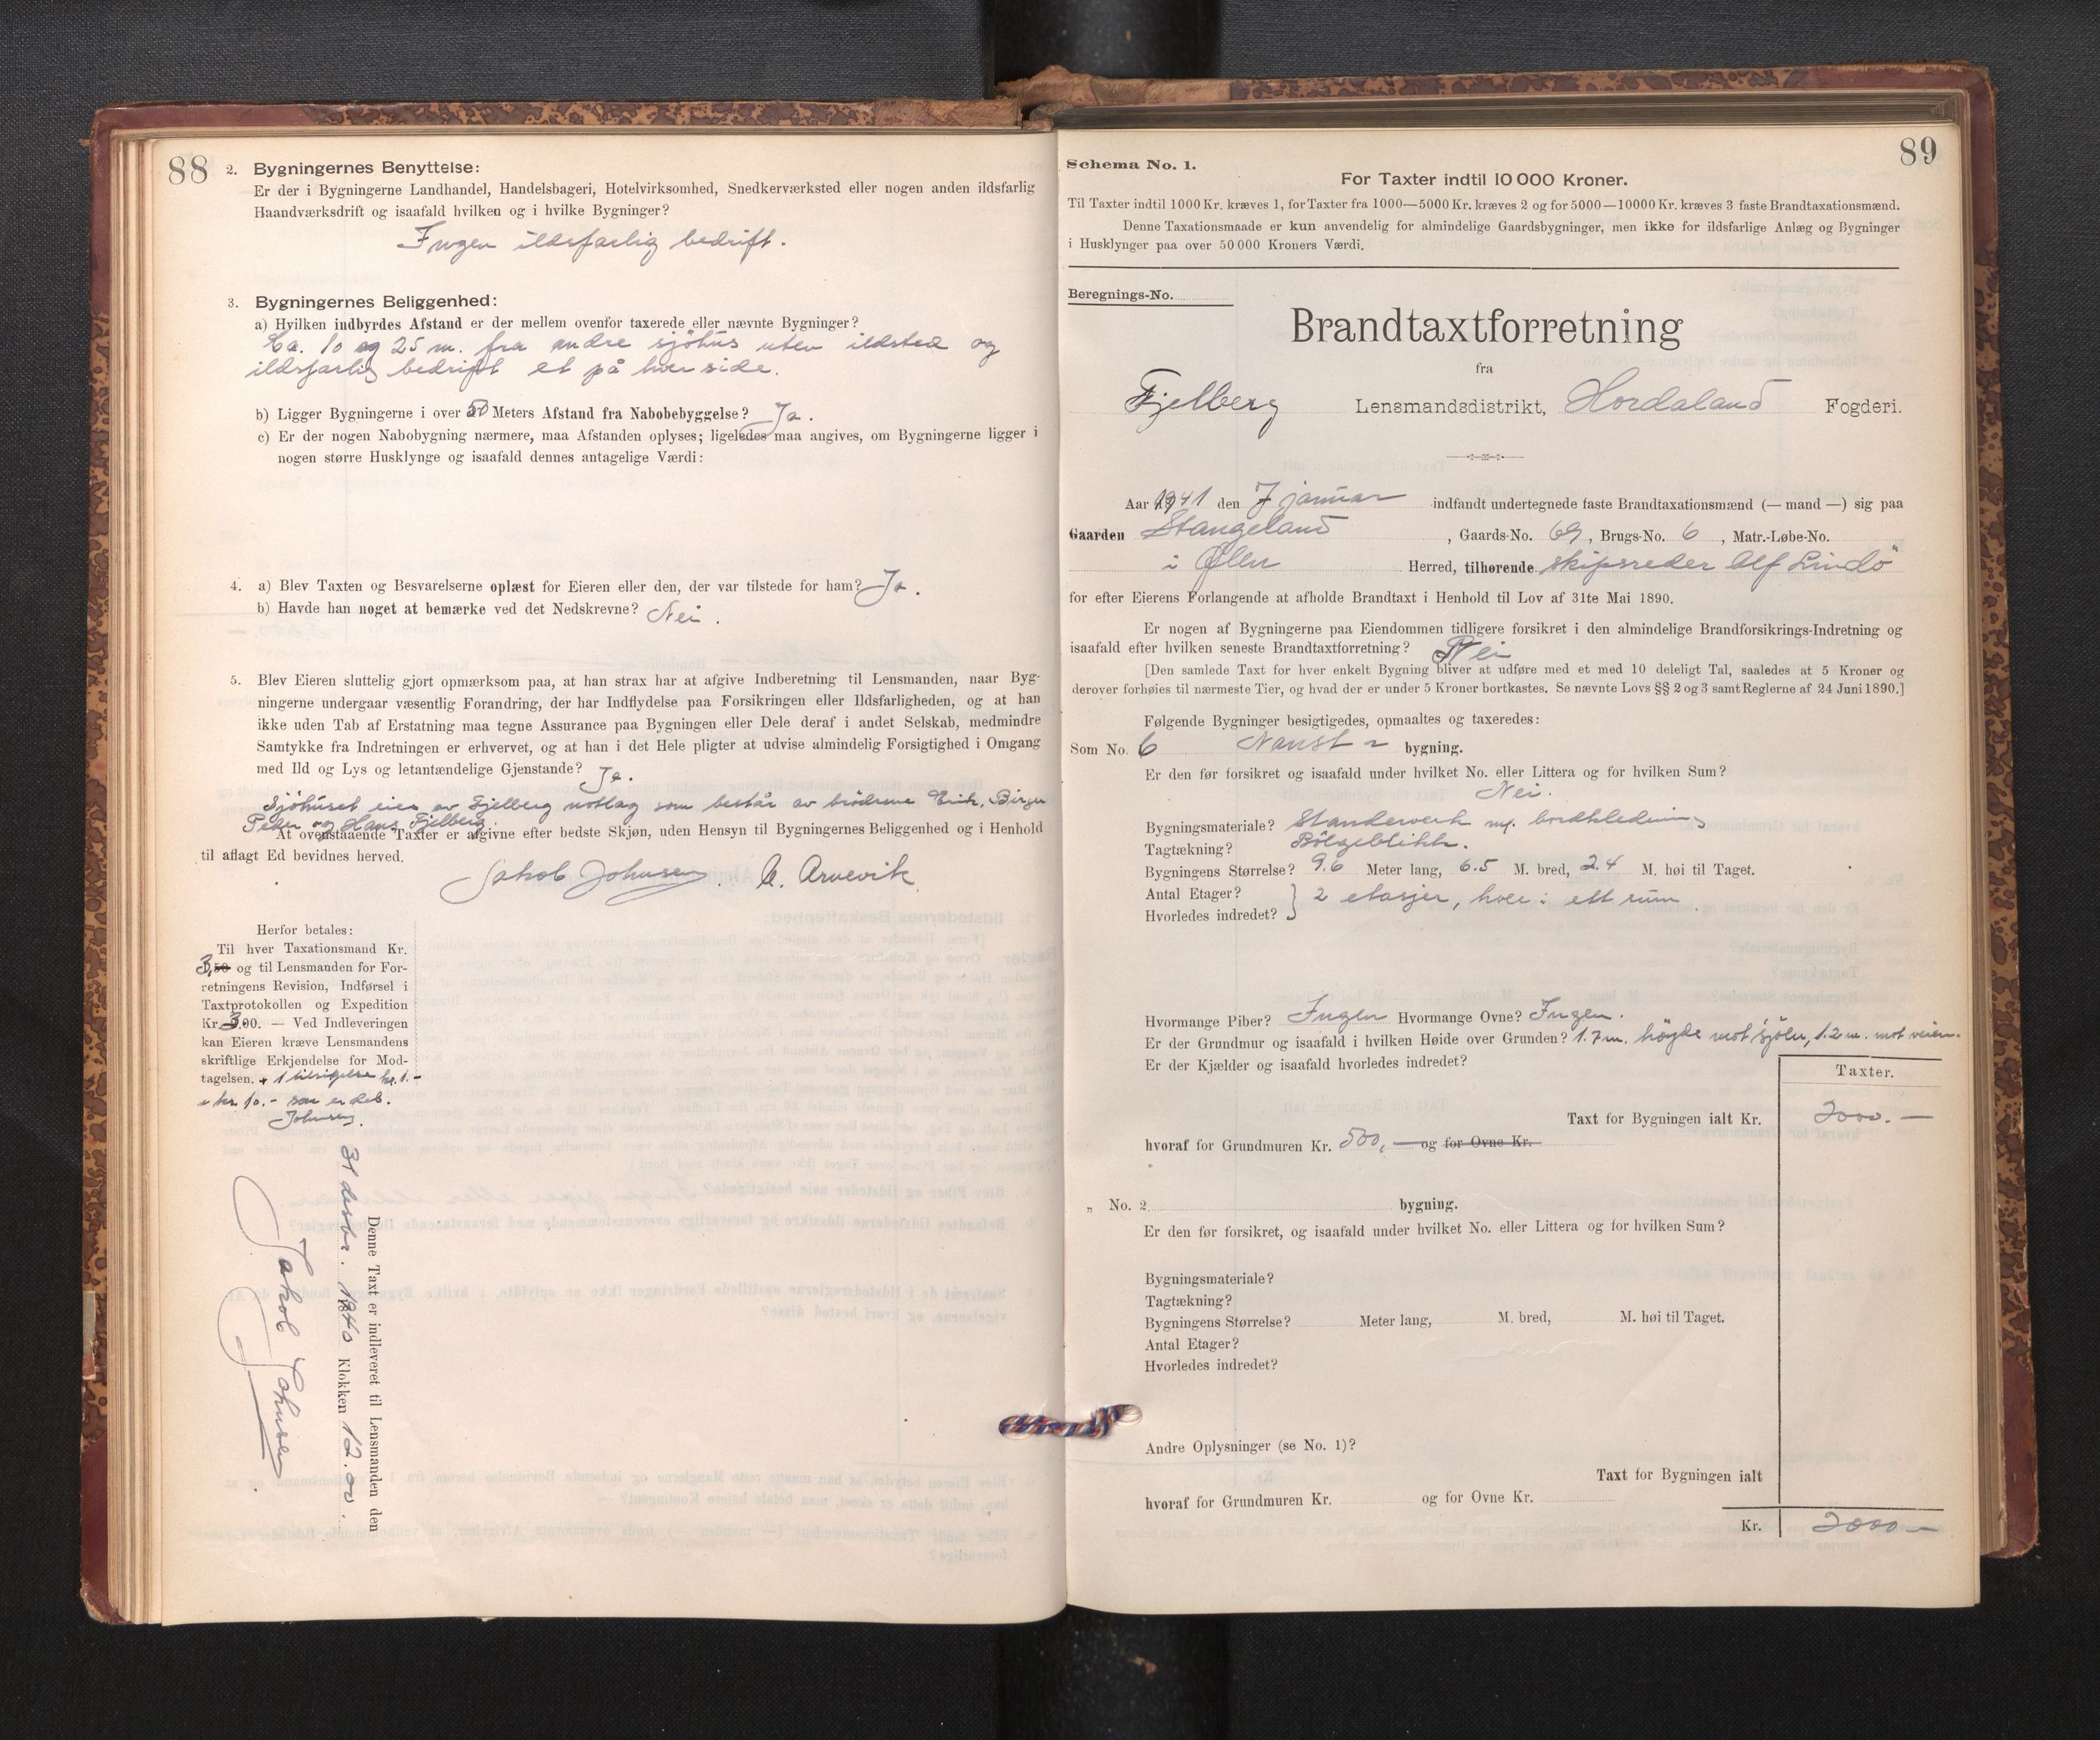 88
2. Bygningernes Benyttelse:
Er der i Bygningerne Landhandel, Handelsbageri, Hotelvirksomhed, Snedkerværksted eller nogen anden ildsfarlig
Haandværksdrift og isaafald hvilken og i hvilke Bygninger?
Ingen ildsfarlig bedrift.
3. Bygningernes Beliggenhed:
a) Hvilken indbyrdes Afstand er der mellem ovenfor taxerede eller nævnte Bygninger?
Ca. 10 og 25 m. fra andre sjöhus uten ildsted og
ildsfarlig bedrift et på hver side.
b) Ligger Bygningerne i over 50 Meters Afstand fra Nabobebyggelse? Ja.
c) Er der nogen Nabobygning nærmere, maa Afstanden oplyses; ligeledes maa angives, om Bygningerne ligger i
nogen større Husklynge og isaafald dennes antagelige Værdi:
4. a) Blev Taxten og Besvarelserne oplæst for Eieren eller den, der var tilstede for ham? Ja.
b) Havde han noget at bemærke ved det Nedskrevne? Nei.
5. Blev Eieren sluttelig gjort opmærksom paa, at han strax har at afgive Indberetning til Lensmanden, naar Byg-
ningerne undergaar væsentlig Forandring, der har Indflydelse paa Forsikringen eller Ildsfarligheden, og at han
ikke uden Tab af Erstatning maa tegne Assurance paa Bygningen eller Dele deraf i andet Selskab, medmindre
Samtykke fra Indretningen er erhvervet, og at han i det Hele pligter at udvise almindelig Forsigtighed i Omgang
med Ild og Lys og letantændelige Gjenstande? Ja.
Sjöhuset eies av Fjelberg notlag som består av brödrene Erik, Birger
Peder og Hans Fjelberg.
At ovenstaaende Taxter er afgivne efter bedste Skjøn, uden Hensyn til Bygningernes Beliggenhed og i Henhold
til aflagt Ed bevidnes herved.
Jakob Johnsen. C. Arnevik
Herfor betales:
Til hver Taxationsmand Kr.
3,50 og til Lensmanden for For-
retningens Revision, Indførsel i
Taxtprotokollen og Expedition
Kr. 3.00. — Ved Indleveringen
kan Eieren kræve Lensmandens
skriftlige Erkjendelse for Mod-
tagelsen. + 1 tilsigelse kr. 1.-
= kr. 10.- som er bet.
Johnsen.
Denne Taxt er indleveret til Lensmanden den
31 desbr. 1940 Klokken 12.00.
Jakob Johnsen
89
Schema No. 1.
For Taxter indtil 10 000 Kroner.
Til Taxter indtil 1000 Kr. kræves 1, for Taxter fra 1000—5000 Kr. kræves 2 og for 5000—10000 Kr. kræves 3 faste Brandtaxationsmænd.
Denne Taxationsmaade er kun anvendelig for almindelige Gaardsbygninger, men ikke for ildsfarlige Anlæg og Bygninger
i Husklynger paa over 50 000 Kroners Værdi.
Beregnings-No.
Brandtaxtforretning
fra
Fjelberg Lensmandsdistrikt, Hordaland Fogderi.
Aar 1941 den 7 januar indfandt undertegnede faste Brandtaxationsmænd (— mand —) sig paa
Gaarden Stangeland, Gaards-No. 69, Brugs-No. 6, Matr.-Løbe-No.
i Ølen Herred, tilhørende skipsreder Alf Lindö
for efter Eierens Forlangende at afholde Brandtaxt i Henhold til Lov af 31te Mai 1890.
Er nogen af Bygningerne paa Eiendommen tidligere forsikret i den almindelige Brandforsikrings-Indretning og
isaafald efter hvilken seneste Brandtaxtforretning? Nei
[Den samlede Taxt for hver enkelt Bygning bliver at udføre med et med 10 deleligt Tal, saaledes at 5 Kroner og
derover forhøies til nærmeste Tier, og hvad der er under 5 Kroner bortkastes. Se nævnte Lovs §§ 2 og 3 samt Reglerne af 24 Juni 1890.]
Følgende Bygninger besigtigedes, opmaaltes og taxeredes:
Som No. 6 Naust - bygning.
Er den før forsikret og isaafald under hvilket No. eller Littera og for hvilken Sum?
Nei.
Bygningsmateriale? Standerverk m/. bordkledning
Tagtækning? Bölgeblikk.
Bygningens Størrelse? 9.6 Meter lang, 6.5 M. bred, 2.4 M. høi til Taget.
Antal Etager? } 2 etasjer, hver i ett rum.
Hvorledes indredet?
Hvormange Piber? Ingen Hvormange Ovne? Ingen.
Er der Grundmur og isaafald i hvilken Høide over Grunden? 1.7 m. höyde mot sjöen, 1.2 m. mot veien.
Er der Kjælder og isaafald hvorledes indredet?
Taxter.
Taxt for Bygningen ialt Kr. 2000.—
hvoraf for Grundmuren Kr. 500,— og for Ovne Kr.
„ No. 2 bygning.
Er den før forsikret, og isaafald under hvilket No. eller Littera og for hvilken Sum?
Bygningsmateriale?
Tagtækning?
Bygningens Størrelse? Meter lang, M. bred, M. høi til Taget.
Antal Etager?
Hvorledes indredet?
Andre Oplysninger (se No. 1)?
Taxt for Bygningen ialt
hvoraf for Grundmuren Kr. og for Ovne Kr.
Kr. 2000—